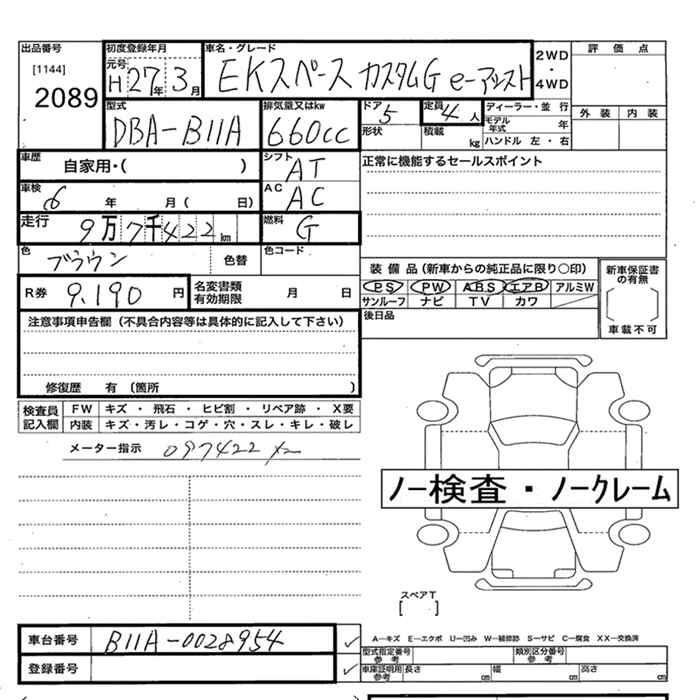 出品番号 初度登録年月 車名・グレード 評価点
[1144] 元号 2WD
2089 H 27年 3月 EKスペース カスタムG e-アシスト ・
4WD
型式 排気量又はkw ドア 定員 ディーラー・並行 外装 内装
DBA-B11A 660cc 5 4人 モデル年式 年
形状 積載 kg ハンドル 左・右
車歴 自家用・( ) シフト AT 正常に機能するセールスポイント
車検 6 年 月( 日) AC AC
走行 9万7千422km 燃料 G
色 ブラウン 色替 色コード
装備品(新車からの純正品に限り○印) 新車保証書の有無
R券 9,190 円 名変書類有効期限 月 日 PS PW ABS エアB アルミW
サンルーフ ナビ TV カワ
注意事項申告欄(不具合内容等は具体的に記入して下さい) 後日品 車載不可
修復歴 有(箇所 )
検査員記入欄 FW キズ・飛石・ヒビ割・リペア跡・X要
内装 キズ・汚レ・コゲ・穴・スレ・キレ・破レ
メーター指示 097422
ノー検査・ノークレーム
スペアT
[ ]
車台番号 B11A-0028954 ✓ A―キズ E―エクボ U―凹み W―補修跡 S―サビ C―腐食 XX―交換済
型式指定番号 参考 類別区分番号 参考
登録番号 ✓ 車庫証明用 参考 長さ cm 幅 cm 高さ cm